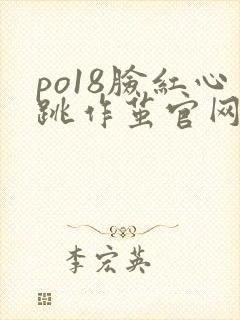 po18臉紅心
跳作茧官网
李宏英